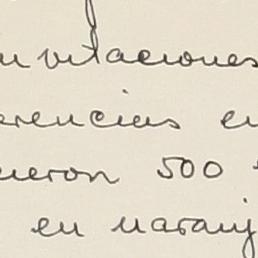 nvitaciones
erencias en
ueron 500
en naranj